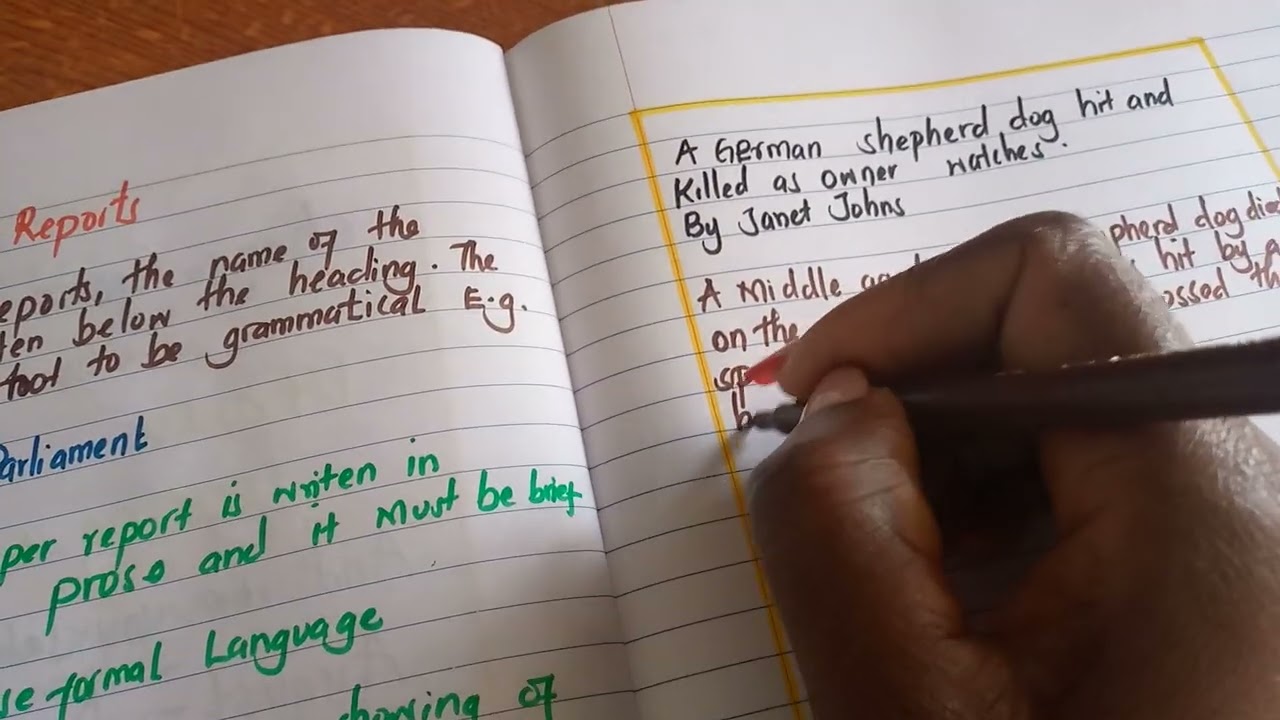 Reports
eports, the name of the
ten below the heading. The
foot to be grammatical E.g.
Parliament
per report is writen in
prose and it must be brief
se formal Language
of
A German shepherd dog hit and
Killed as owner watches.
By Janet Johns
A Middle pherd dog die
on the hit by a
sp ossed th
b